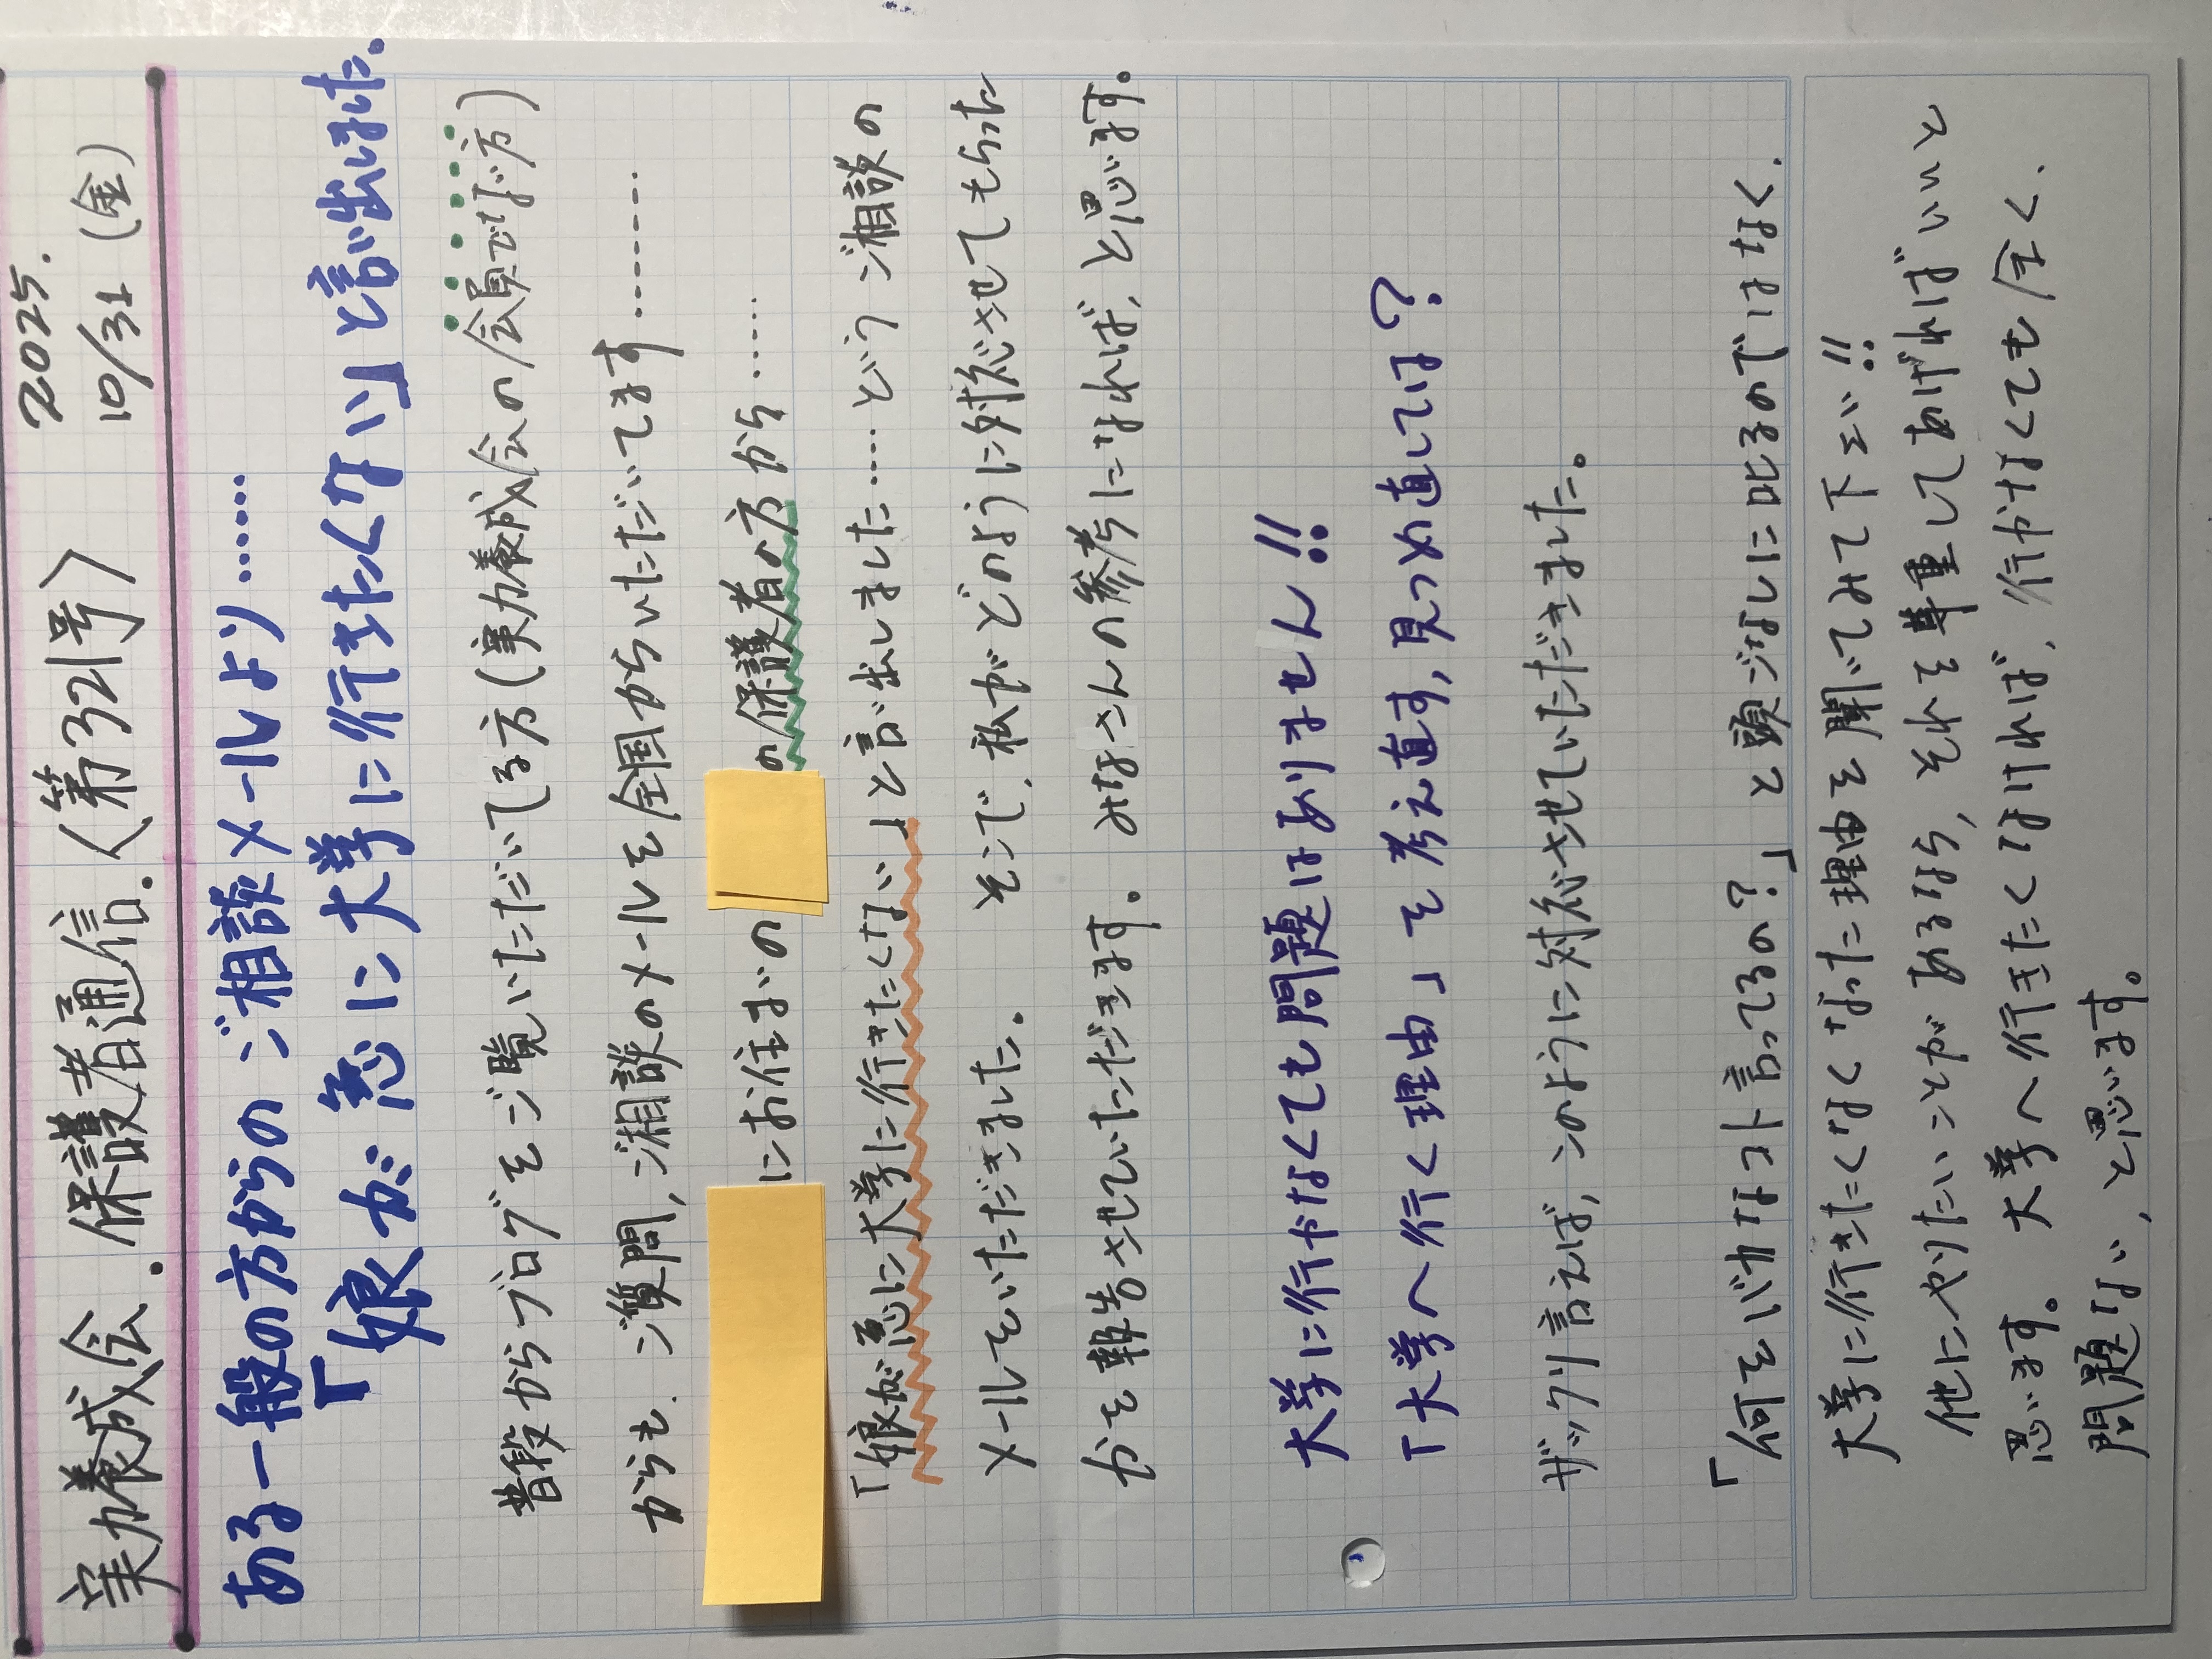 実力養成会.保護者通信.〈第321号〉
2025.
10/31(金)
ある一般の方からのご相談メールより……
「娘が急に大学に行きたくない」と言い出した.
普段からブログをご覧いただいてる方(実力養成会の会員でない方)
からも.ご質問,ご相談のメールを全国からいただいてます………
にお住まいの
の保護者の方から……
「娘が急に大学に行きたくない」と言い出しました……というご相談の
メールをいただきました。そこで、私がどのように対応させてもらった
かを報告させていただきます。みなさんの参考になれば、と思います。
大学に行かなくても問題はありません!!
「大学へ行く理由」を考え直す,見つめ直しては?
ザックリ言えば,このように対応させていただきました。
「何をバカなコト言ってるの?」と頭ごなしに叱るのではなく.
大学に行きたくなくなった理由を聞いてみて下さい!!
他にやりたいことがあるなら、それを尊重してあげればいいと
思います。大学へ行きたくなければ、行かなくても全く.
問題ない、と思います。